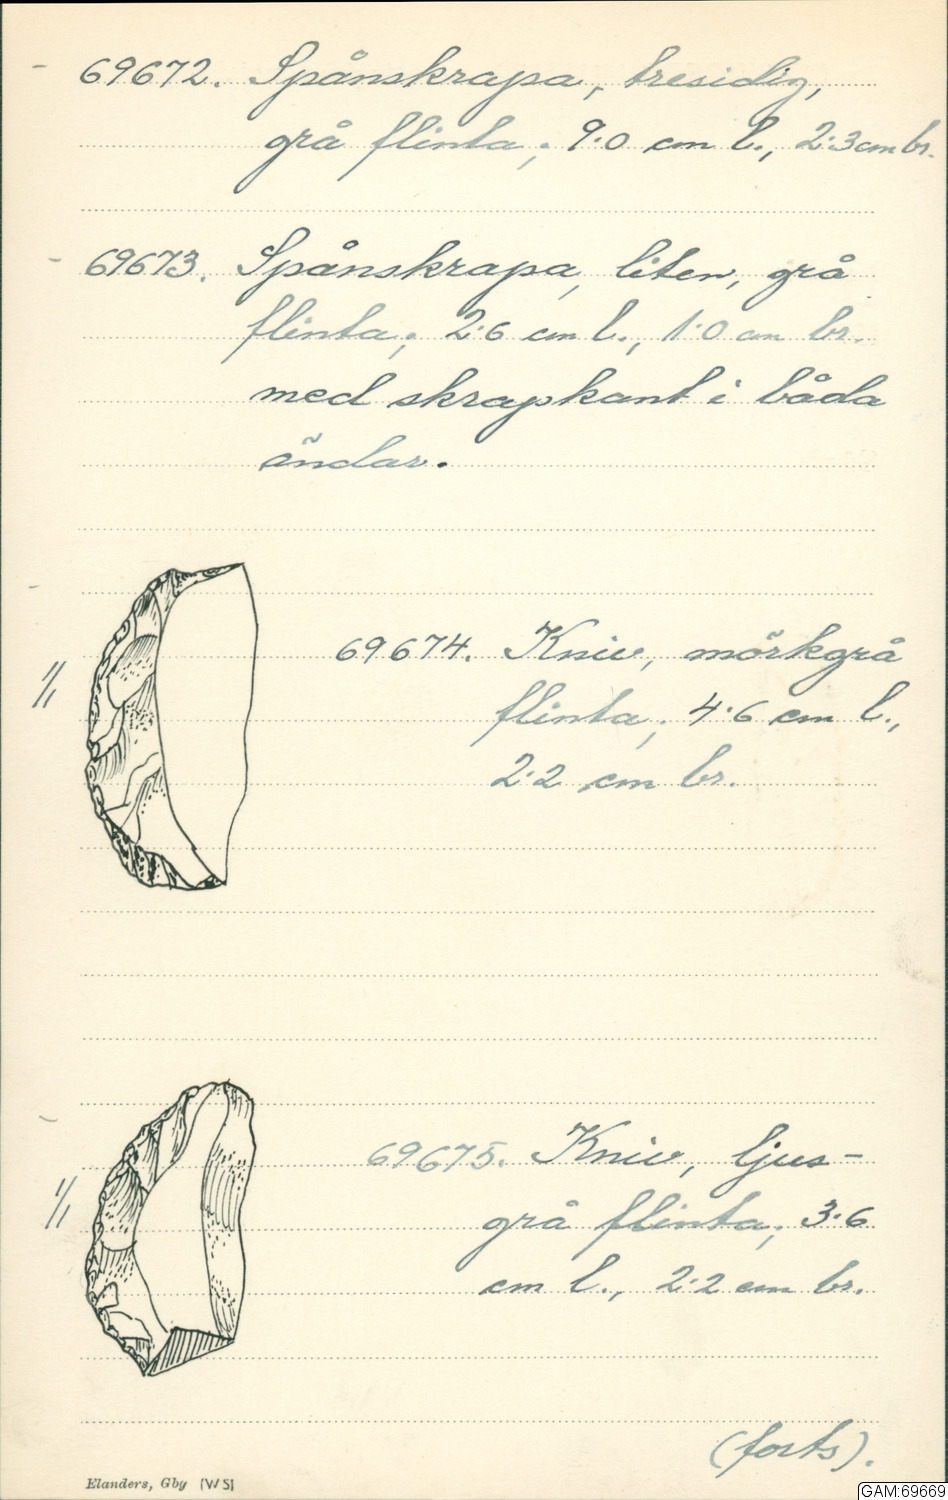 - 69672. Spånskrapa, tresidig,
grå flinta; 9·0 cm l., 2·3 cm br.
- 69673. Spånskrapa, liten, grå
flinta; 2·6 cm l., 1·0 cm br.
med skrapkant i båda
ändar.
1/1
69674. Kniv, mörkgrå
flinta; 4·6 cm l.,
2·2 cm br.
1/1
69675. Kniv, ljus-
grå flinta; 3·6
cm l., 2·2 cm br.
(forts).
Elanders, Gby [WS]
GAM:69669